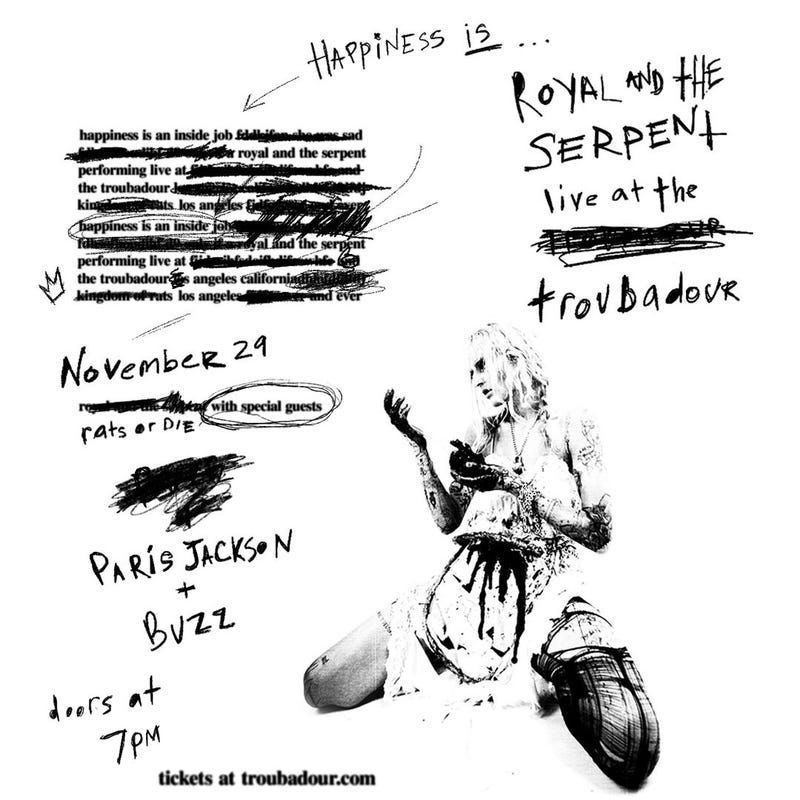 HAPPINESS is ...
ROYAL AND tHE
SERPENt
live at the
troubadour
happiness is an inside job she was sad
royal and the serpent
performing live at
the troubadour
kingdom of rats los angeles ever
happiness is an inside job
royal and the serpent
performing live at
the troubadour los angeles california
kingdom of rats los angeles and ever
November 29
royal and the serpent with special guests
rats or DIE
PARIS JACKSON
+
BUZZ
doors at
7PM
tickets at troubadour.com